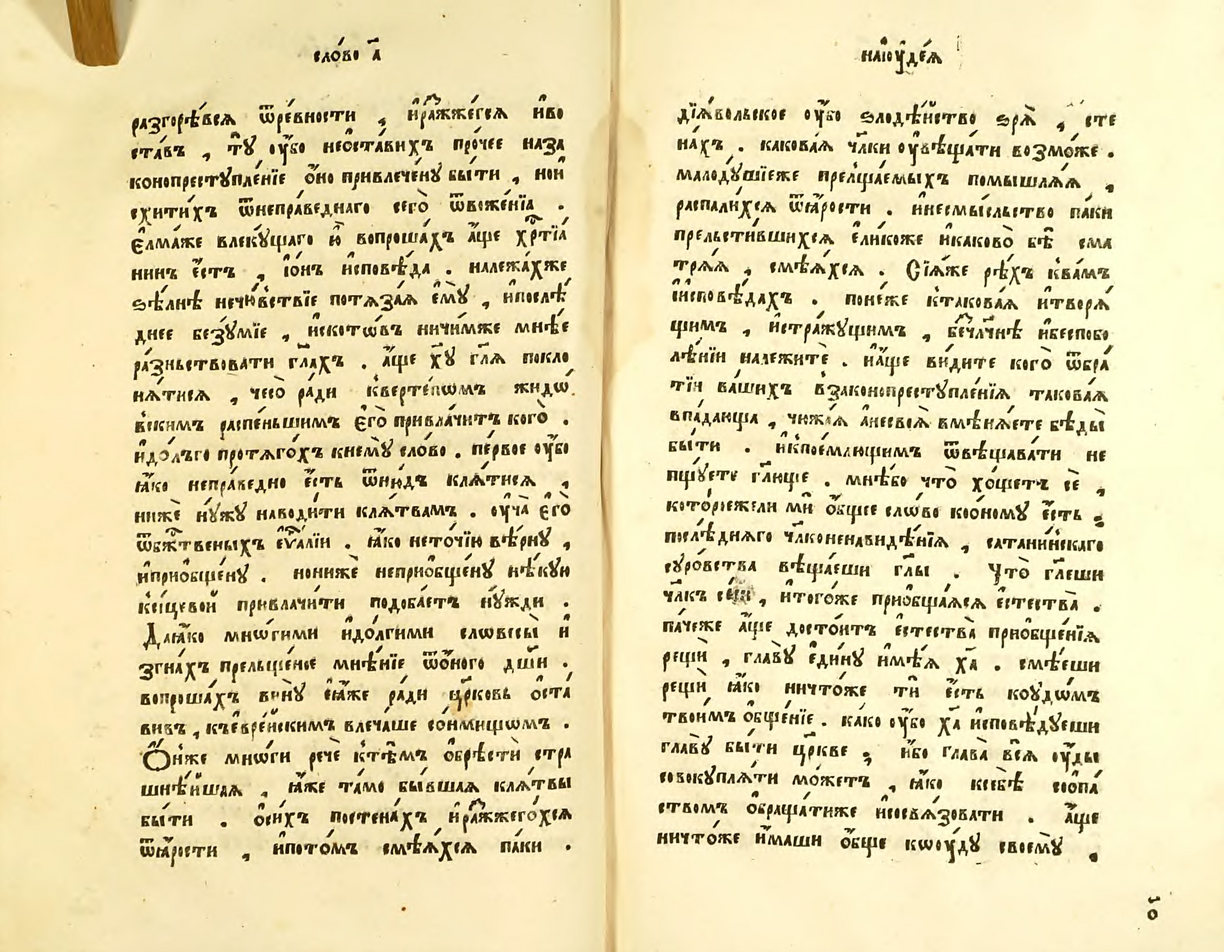 сло́во а҃
разгорѣ́вся ѿре́вности , и҆ражже́гся и҆во
ста́въ , тꙋ̀ ᲂу҆́бо неѡста́вихъ про́чее наза
конопрестꙋпле́нїе ѻ҆́но привлече́нꙋ бы́ти , нои
схити́хъ ѿнепра́веднаго сего̀ ѿвоже́нїа .
Е҆лма́же влекꙋ́щаго и҆̀ вопроша́хъ а҆́ще хрⷭ҇тїа
нинъ є҆́сть , і҆о́нъ и҆сповѣ́да . належа́хже
ѕѣ́лнѣ нечю́вствїе потѧза́ѧ є҆мꙋ̀ , и҆послѣ́
днее безꙋ́мїе , и҆скотѡ́въ ничи́мже мнѣ́е
ра́зньствовати гл҃ахъ . а҆́ще хꙋ҃ гл҃ѧ покло
нѧ́тисѧ , чесо̀ ра́ди кверте́пѡмъ жидо́
вскимъ распе́ньшимъ є҆го̀ привлачи́тъ кого̀ .
и҆до́лъго протѧго́хъ кнемꙋ̀ сло́во . пе́рвое ᲂу҆́бо
ꙗ҆́ко непра́ведно є҆́сть ѿню́дъ клѧ́тисѧ ,
нижѐ нꙋ́жꙋ наводи́ти клѧ́твамъ . ᲂу҆ча̀ є҆го̀
ѿбжⷭ҇твеныхъ є҆ѵⷢ҇алїи . ꙗ҆́ко нето́чїю вѣ́рнꙋ ,
и҆приѻбще́нꙋ . нонижѐ неприѻбще́нꙋ нѣ́кꙋю
ксицево́й привлачи́ти подоба́етъ нꙋ́жди .
Даꙗ҆́ко мно́гими и҆до́лгими словесы̀ и҆
згна́хъ прельще́ное мнѣ́нїе ѿо́ного дш҃и .
вопроша́хъ винꙋ̀ є҆ѧ́же ра́ди цр҃ковь ѻ҆ста́
вивъ , къє҆вре́йскимъ влеча́ше со́нмищѡмъ .
Ѻ҆́нже мно́ги речѐ ктѣ́мъ ѻ҆брѣстѝ стра
шнѣ́йшаѧ , ꙗ҆́же та́мо бы́вшаѧ клѧ́твы
бы́ти . ѻ҆си́хъ постена́хъ и҆ражжего́хсѧ
ѿꙗ҆́рости , и҆пото́мъ смѣѧ́хсѧ па́ки .
наі҆ꙋде́ѧ
дїѧ́вольское ᲂу҆́бо ѕлодѣ́йство ѕрѧ̀ , сте
на́хъ . какова́ѧ чл҃ки ᲂу҆вѣща́ти возмо́же .
малодꙋ́шїеже прельща́емыхъ помышлѧ́ѧ ,
распали́хсѧ ѿꙗ҆́рости . и҆несмы́сльство па́ки
прельсти́вшихсѧ є҆ли́коже и҆каково̀ бѣ̀ сма
трѧ́ѧ , смѣѧ́хсѧ . Сїѧ́же рѣ́хъ ква́мъ
и҆исповѣ́дахъ . поне́же ктакова́ѧ и҆творѧ́
щимъ , и҆стра́жꙋщимъ , бечⷧ҇а́чнѣ и҆беспобо
лѣ́нїи належитѐ . и҆а҆́ще ви́дите кого̀ ѿбра́
тїи ва́шихъ взаконопрестꙋпле́нїѧ такова́ѧ
впа́дающа , чю́жаѧ а҆несвоѧ̀ вмѣнѧ́ете бѣды̀
бы́ти . и҆кпое́млющимъ ѿвѣщава́ти не
пщꙋ́ете гл҃юще . мнѣ́бо что̀ хо́щетъ сѐ ,
кото́роежели мѝ ѻ҆́бщее сло́во коѻ́номꙋ є҆́сть ;
послѣ́днѧго чл҃коненавидѣ́нїѧ , сатани́нскаго
сꙋро́вства вѣща́еши гл҃ы . Что̀ гл҃еши
чл҃къ сы́й , и҆того́же приѻбща́ѧсѧ є҆стества̀ .
па́чеже а҆́ще досто́итъ є҆стества̀ приѻбще́нїѧ
рещѝ , главꙋ̀ є҆ди́нꙋ и҆мѣ́ѧ ха҃ . смѣ́еши
рещѝ ꙗ҆́ко ничто́же тѝ є҆́сть коꙋдѡ́мъ
твои́мъ ѻ҆бще́нїе . ка́ко ᲂу҆́бо ха҃ и҆сповѣ́дꙋеши
главꙋ̀ бы́ти цр҃кве ; и҆́бо глава̀ всѧ̀ ᲂу҆́ды
совокꙋплѧ́ти мо́жетъ , ꙗ҆́ко ксебѣ̀ соѻпа́
ствомъ ѻ҆браща́тиже и҆совѧ́зовати . а҆́ще
ничто́же и҆́маши ѻ҆́бще кѡꙋ́дꙋ своемꙋ̀ ,